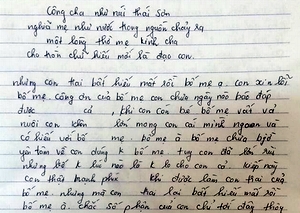 Công cha như núi thái sơn
nghĩa mẹ như nước trong nguồn chảy ra
một lòng thờ mẹ kính cha
cho tròn chữ hiếu mới là đạo con.
nhưng con trai bất hiếu mất rồi bố mẹ ạ. con xin lỗi
bố mẹ công ơn của bố mẹ con chưa ngày nào báo đáp
được cả, khi con còn bé bố mẹ vất vả
nuôi con khôn lớn mong con cái mình ngoan và
có hiếu với bố mẹ. bố mẹ à bố mẹ chưa bao giờ
yên tâm về con đúng k bố mẹ tuy con đã lớn rồi
nhưng bố k lúc nào là k lo cho con cả kiếp này
con thấy hạnh phúc khi được làm con trai của
bố mẹ. nhưng mà con trai lại bất hiếu mất rồi
bố mẹ ạ. chắc số phận của con chỉ tới đây thôi